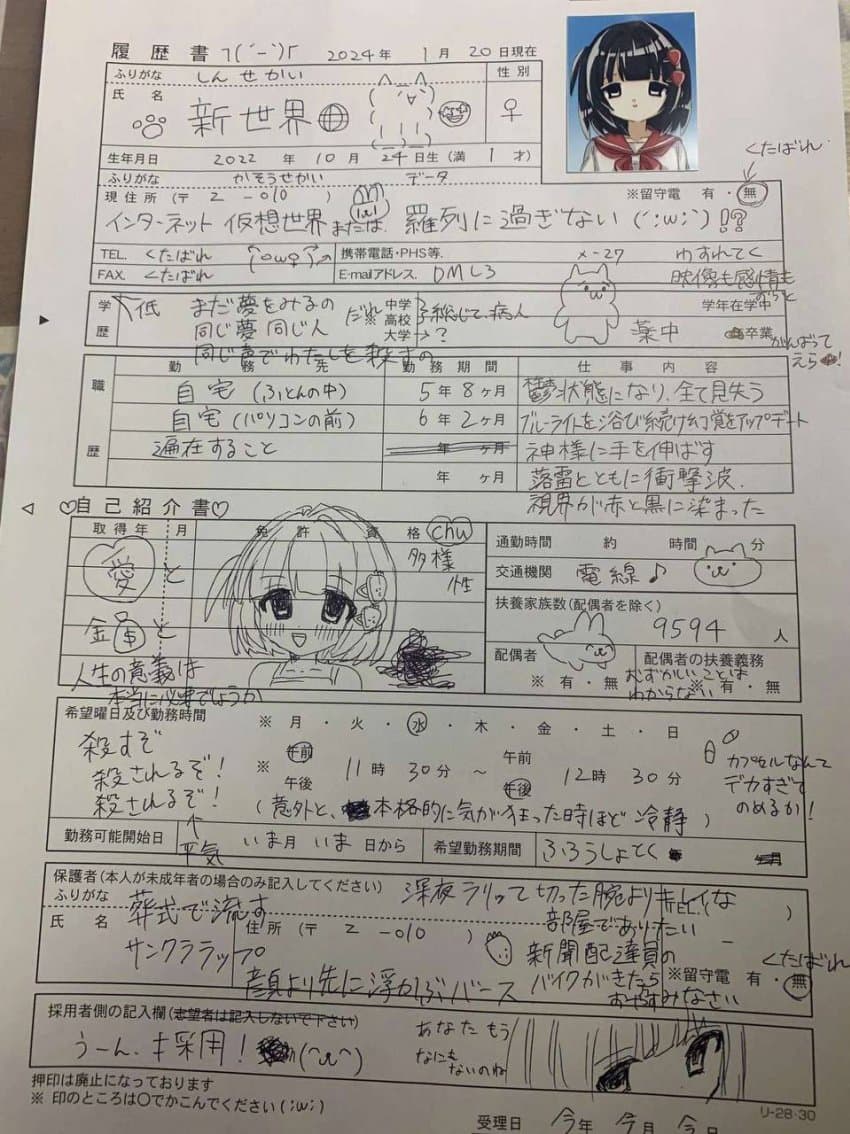 履歴書 ┐(´ー`)┌ 2024年 1月 20日現在
ふりがな しんせかい
性別
氏名 新世界
♀
くたばれ
生年月日 2022年 10月 24日生(満 1才)
ふりがな かそうせかい データ
現住所(〒 2-010 )
※留守電 有・無
インターネット 仮想世界 または 羅列に過ぎない(´;ω;`)!?
TEL. くたばれ
FAX. くたばれ
携帯電話・PHS等. メ-27
E-mailアドレス. DML3
わすれてく
映像も感情も
ずらっと
学歴
低
まだ夢をみるの
同じ夢 同じ人
同じ声でわたしを殺すの
だれ
※
中学
高校
大学
総じて、病人
→?
薬中
学年在学中
卒業
がんばって
えらい!
職歴
勤務先
勤務期間
仕事内容
自宅(ふとんの中) 5年8ヶ月 鬱状態になり、全て見失う
自宅(パソコンの前) 6年2ヶ月 ブルーライトを浴び続け幻覚をアップデート
遍在すること 年 ヶ月 神様に手を伸ばす
年 ヶ月 落雷とともに衝撃波、
視界が赤と黒に染まった
♡自己紹介書♡
取得年 月 免許 資格
chu
多様性
愛と
金と
人生の意義は
本当に必要でしょうか
通勤時間 約 時間 分
交通機関 電線♪
扶養家族数(配偶者を除く)
9594人
配偶者
※有・無
配偶者の扶養義務
※有・無
むずかしいことは
わからない
希望曜日及び勤務時間
※月・火・水・木・金・土・日
殺すぞ
殺されるぞ!
殺されるぞ!
↑
平気
※ 午前 午後 11時 30分 ~ 午前 午後 12時 30分
(意外と、本格的に気が狂った時ほど冷静)
カプセルなんて
デカすぎて
のめるか!
勤務可能開始日 いま月 いま日から
希望勤務期間 ふろうしょとく
保護者(本人が未成年者の場合のみ記入してください)
ふりがな
氏名
葬式で流す
サンクラップ
住所(〒 2-010 )
TEL.( )
深夜ラリって切った腕よりキレイな
部屋でありたい
新聞配達員の
バイクがきたら
おやすみなさい
顔より先に浮かぶバース
※留守電 有・無
くたばれ
採用者側の記入欄(志望者は記入しないで下さい)
うーん、才採用!
あなたもう
なにも
ないのね
押印は廃止になっております
※印のところは○でかこんでください(;ω;)
リ-28・30
受理日 今年 今月 今日